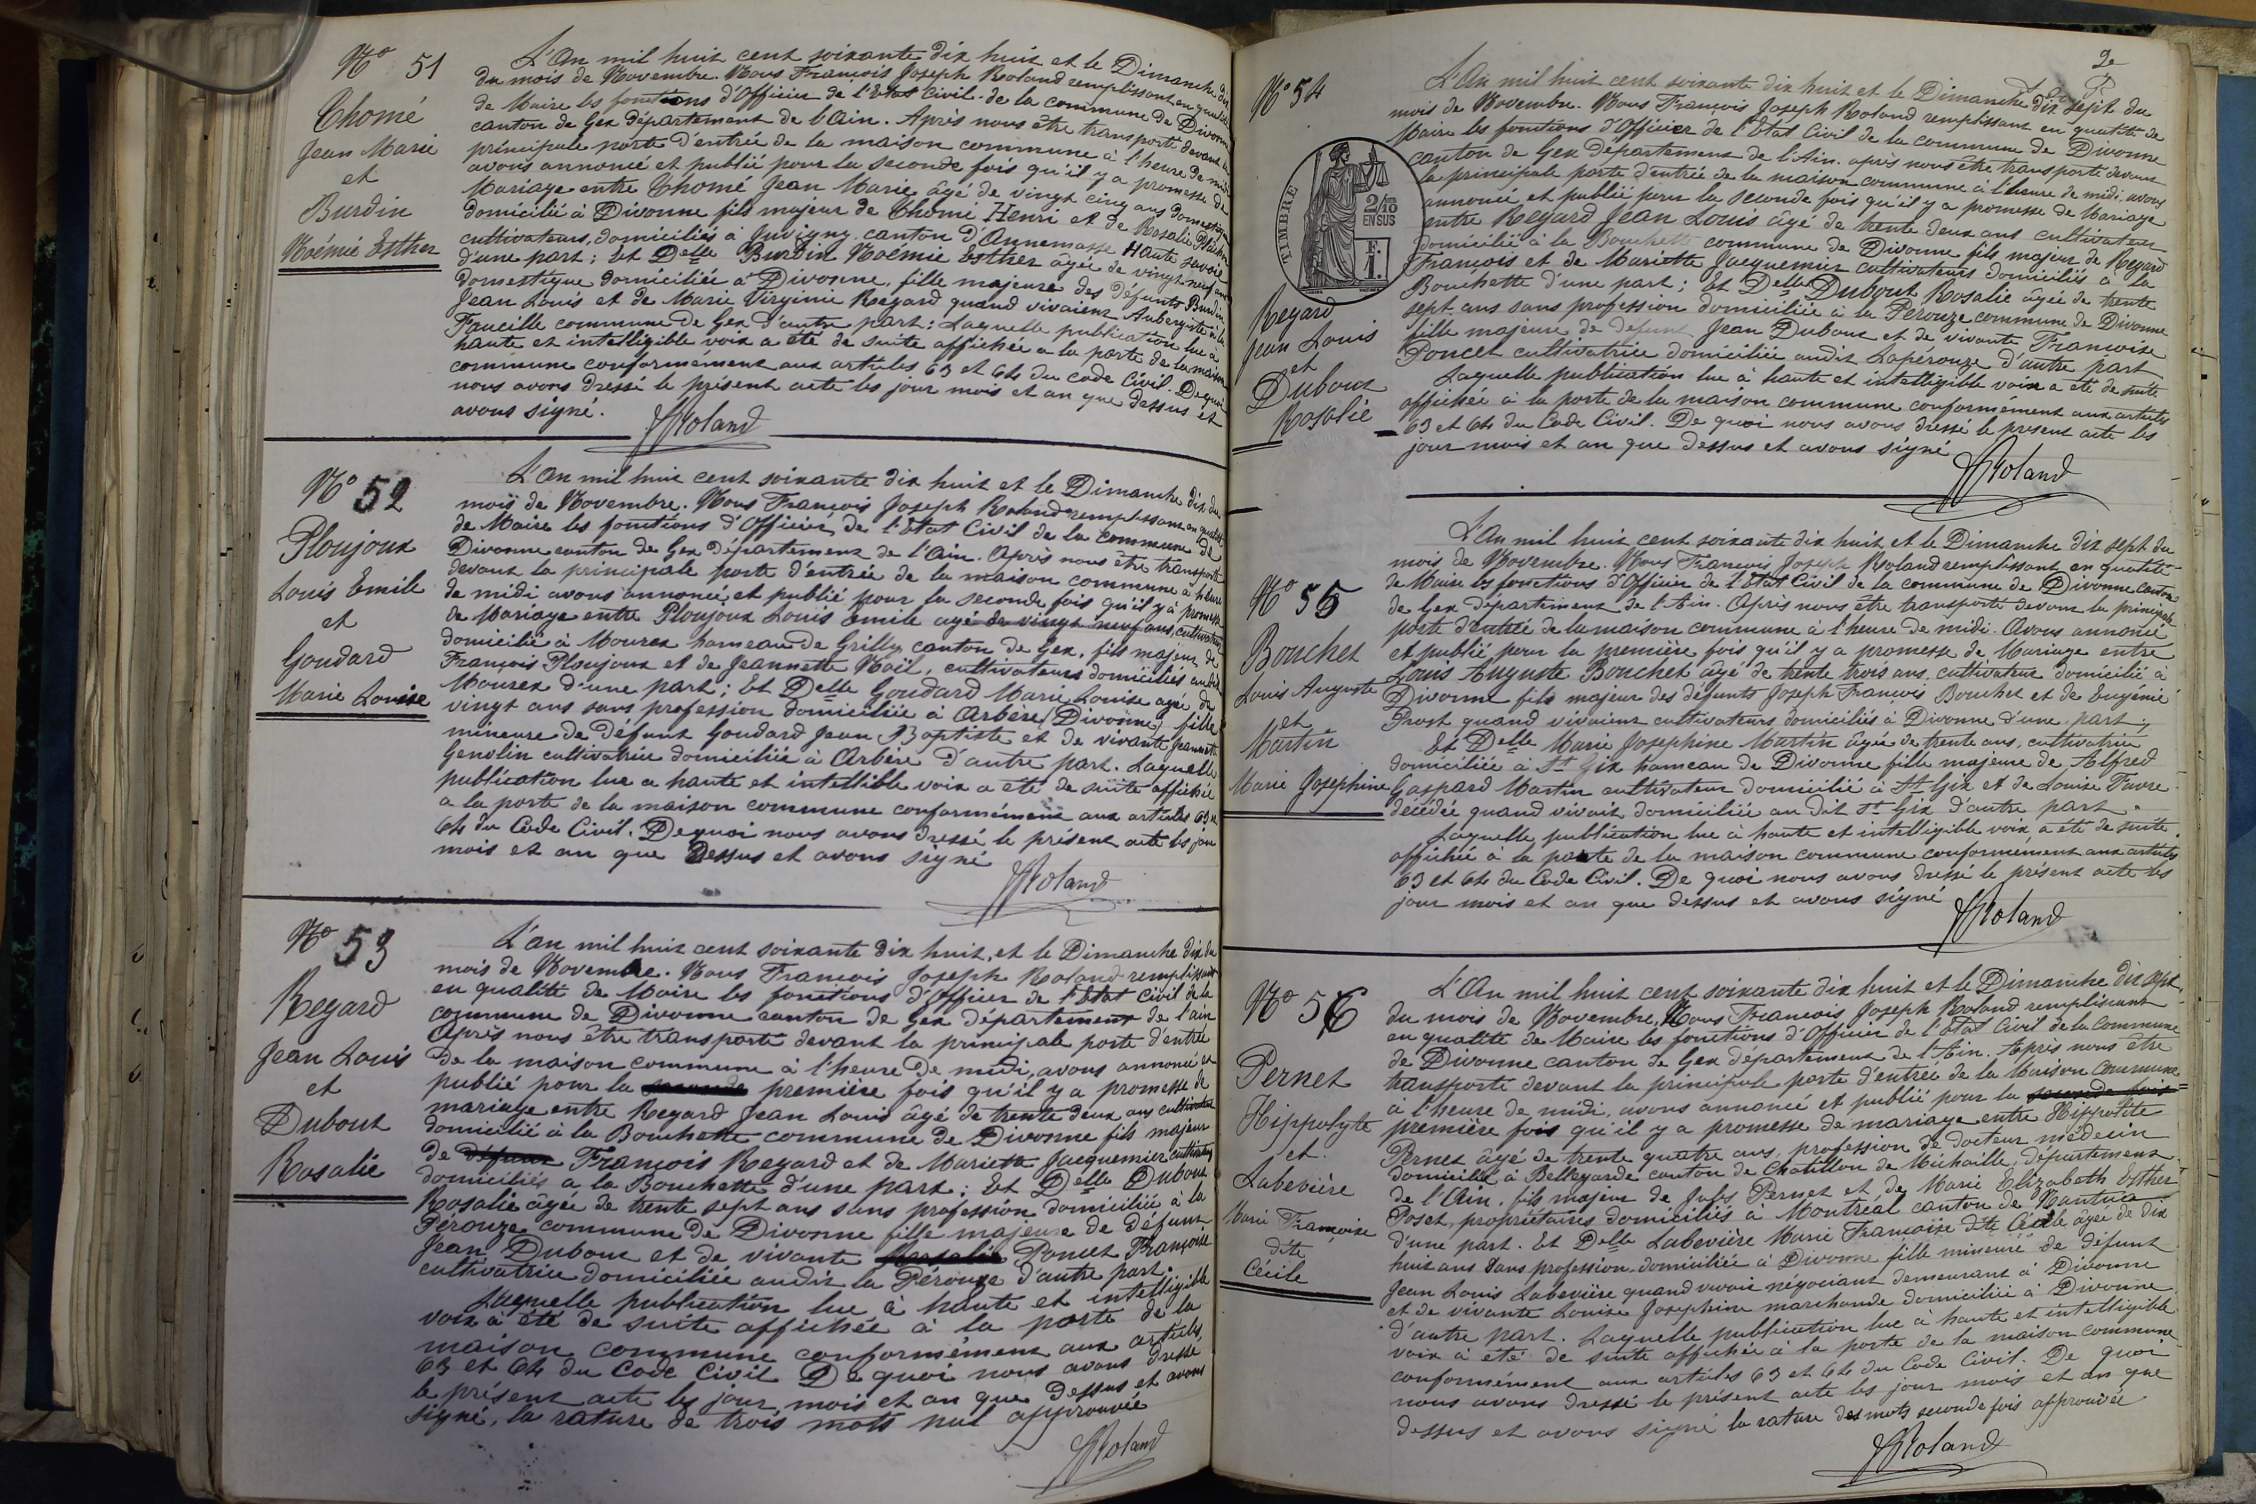 N° 51
Thomé
Jean Marie
et
Burdin
Noémie Esther
L'An mil huit cent soixante dix huit et le Dimanche dix
du mois de Novembre. Nous François Joseph Roland remplissant en qualité
de Maire les fonctions d'Officier de l'Etat Civil de la commune de Divonne
canton de Gex département de l'Ain. Après nous être transporté devant la
principale porte d'entrée de la maison commune à l'heure de midi
avons annoncé et publié pour la seconde fois qu'il y a promesse de
Mariage entre Thomé Jean Marie âgé de vingt cinq ans domestique
domicilié à Divonne fils majeur de Thomé Henri et de Rosalie
cultivateurs, domiciliés à Juvigny canton d'Annemasse Haute Savoie
d'une part ; Et Delle Burdin Noémie Esther âgée de vingt neuf ans
domestique domiciliée à Divonne, fille majeure des défunts Burdin
Jean Louis et de Marie Virginie Regard quand vivaient Aubergiste à la
Faucille commune de Gex d'autre part : Laquelle publication lue à
haute et intelligible voix a été de suite affichée a la porte de la maison
commune conformément aux articles 63 et 64 du code Civil. De quoi
nous avons dressé le présent acte les jour mois et an que dessus et
avons signé.
JRoland
N° 52
Ploujoux
Louis Emile
et
Goudard
Marie Louise
L'An mil huit cent soixante dix huit et le Dimanche dix du
mois de Novembre. Nous François Joseph Roland remplissant en qualité
de Maire les fonctions d'Officier de l'Etat Civil de la commune de
Divonne canton de Gex Département de l'Ain. Après nous être transporté
devant la principale porte d'entrée de la maison commune à l'heure
de midi avons annoncé et publié pour la seconde fois qu'il y a promesse
de Mariage entre Ploujoux Louis Emile agé de vingt neuf ans, cultivateur
domicilié à Mourex hameau de Grilly canton de Gex, fils majeur de
François Ploujoux et de Jeannette Noël, cultivateurs domiciliés audit
Mourex d'une part ; Et Delle Goudard Marie Louise agée de
vingt ans sans profession domiciliée à Arbère (Divonne) fille
mineure de Défunt Goudard Jean Baptiste et de vivante Jeannette
Genolin cultivatrice domiciliée à Arbère d'autre part. Laquelle
publication lue a haute et intellible voix a été de suite affichée
a la porte de la maison commune conformément aux articles 63 et
64 du Code Civil. De quoi nous avons dressé le présent acte les jour
mois et an que dessus et avons signé
JRoland
N° 53
Regard
Jean Louis
et
Dubout
Rosalie
L'an mil huit cent soixante dix huit, et le Dimanche dix du
mois de Novembre. Nous François Joseph Roland remplissant
en qualité de Maire les fonctions d'Officier de l'Etat Civil de la
commune de Divonne canton de Gex département de l'ain
Après nous être transporté devant la principale porte d'entrée
de la maison commune à l'heure de midi, avons annoncé et
publié pour la seconde première fois qu'il y a promesse de
mariage entre Regard Jean Louis âgé de trente deux ans cultivateur
domicilié à la Bouchette commune de Divonne fils majeur
de défunt François Regard et de Mariette Jacquemier cultivateurs
domiciliés a la Bouchette d'une part ; Et Delle Dubout
Rosalie âgée de trente sept ans sans profession domiciliée à la
Pérouze commune de Divonne fille majeure de défunt
Jean Dubout et de vivante Rosalie Poncet Françoise
cultivatrice domiciliée audit la Pérouze d'autre part.
Laquelle publication lue à haute et intelligible
voix a été de suite affichée à la porte de la
maison commune conformément aux articles
63 et 64 du Code Civil De quoi nous avons dressé
le présent acte les jour, mois et an que dessus et avons
signé, la rature de trois mots nul approuvée
JRoland
2e
N° 54
TIMBRE
2/10
EN SUS
F.
1.
Regard
Jean Louis
et
Dubout
Rosalie
L'An mil huit cent soixante dix huit et le Dimanche dix sept du
mois de Novembre. Nous François Joseph Roland remplissant en qualité de
Maire les fonctions d'Officier de l'Etat Civil de la commune de Divonne
canton de Gex Département de l'Ain. après nous être transporté devant
la principale porte d'entrée de la maison commune à l'heure de midi, avons
annoncé et publié pour la seconde fois qu'il y a promesse de Mariage
entre Regard Jean Louis âgé de trente deux ans cultivateur
domicilié à la Bouchette commune de Divonne fils majeur de Regard
François et de Mariette Jacquemier cultivateurs domiciliés à la
Bouchette d'une part ; Et Delle Dubout Rosalie âgée de trente
sept ans sans profession domiciliée à la Pérouze commune de Divonne
fille majeure de défunt Jean Dubout et de vivante Françoise
Poncet cultivatrice domiciliée audit Lapérouze d'autre part
Laquelle publication lue à haute et intelligible voix a été de suite
affichée à la porte de la maison commune conformément aux articles
63 et 64 du Code Civil. De quoi nous avons dressé le présent acte les
jour mois et an que dessus et avons signé
JRoland
N° 55
Bouchet
Louis Auguste
et
Martin
Marie Josephine
L'An mil huit cent soixante dix huit et le Dimanche dix sept du
mois de Novembre. Nous François Joseph Roland remplissant en qualité
de Maire les fonctions d'Officier de l'Etat Civil de la commune de Divonne canton
de Gex département de l'Ain. Après nous être transporté devant la principale
porte d'entrée de la maison commune à l'heure de midi. Avons annoncé
et publié pour la première fois qu'il y a promesse de Mariage entre
Louis Auguste Bouchet âgé de trente trois ans, cultivateur domicilié à
Divonne fils majeur des défunts Joseph François Bouchet et de Eugénie
Prost quand vivaient cultivateurs domiciliés à Divonne d'une part ;
Et Delle Marie Josephine Martin âgée de trente ans, cultivatrice
domiciliée à St Gix hameau de Divonne fille majeure de Alfred
Gaspard Martin cultivateur domicilié à St Gix et de Louise Favre
décédée quand vivait domiciliée au dit St Gix d'autre part.
Laquelle publication lue à haute et intelligible voix a été de suite
affichée à la porte de la maison commune conformément aux articles
63 et 64 du Code Civil. De quoi nous avons dressé le présent acte les
jour mois et an que dessus et avons signé
JRoland
N° 56
Pernet
Hippolyte
et
Labevière
Marie Françoise
dite
Cécile
L'An mil huit cent soixante dix huit et le Dimanche dix sept
du mois de Novembre, Nous François Joseph Roland remplissant
en qualité de Maire les fonctions d'Officier de l'Etat Civil de la Commune
de Divonne canton de Gex département de l'Ain. Après nous être
transporté devant la principale porte d'entrée de la Maison Commune
à l'heure de midi, avons annoncé et publié pour la seconde fois
première fois qu'il y a promesse de mariage entre Hippolite
Pernet âgé de trente quatre ans, profession de docteur médecin
domicilié à Bellegarde canton de Chatillon de Michaille, département
de l'Ain, fils majeur de Jules Pernet et de Marie Elizabeth Esther
Poset, propriétaires domiciliés à Montréal canton de Nantua
d'une part. Et Delle Labevière Marie Françoise dite Cécile âgée de dix
huit ans sans profession domiciliée à Divonne fille mineure de défunt
Jean Louis Labevière quand vivait négociant demeurant à Divonne
et de vivante Louise Josephine marchande domiciliée à Divonne
d'autre part. Laquelle publication lue à haute et intelligible
voix à été de suite affichée à la porte de la maison commune
conformément aux articles 63 et 64 du Code Civil. De quoi
nous avons dressé le présent acte les jour mois et an que
dessus et avons signé la rature des mots seconde fois approuvée
JRoland